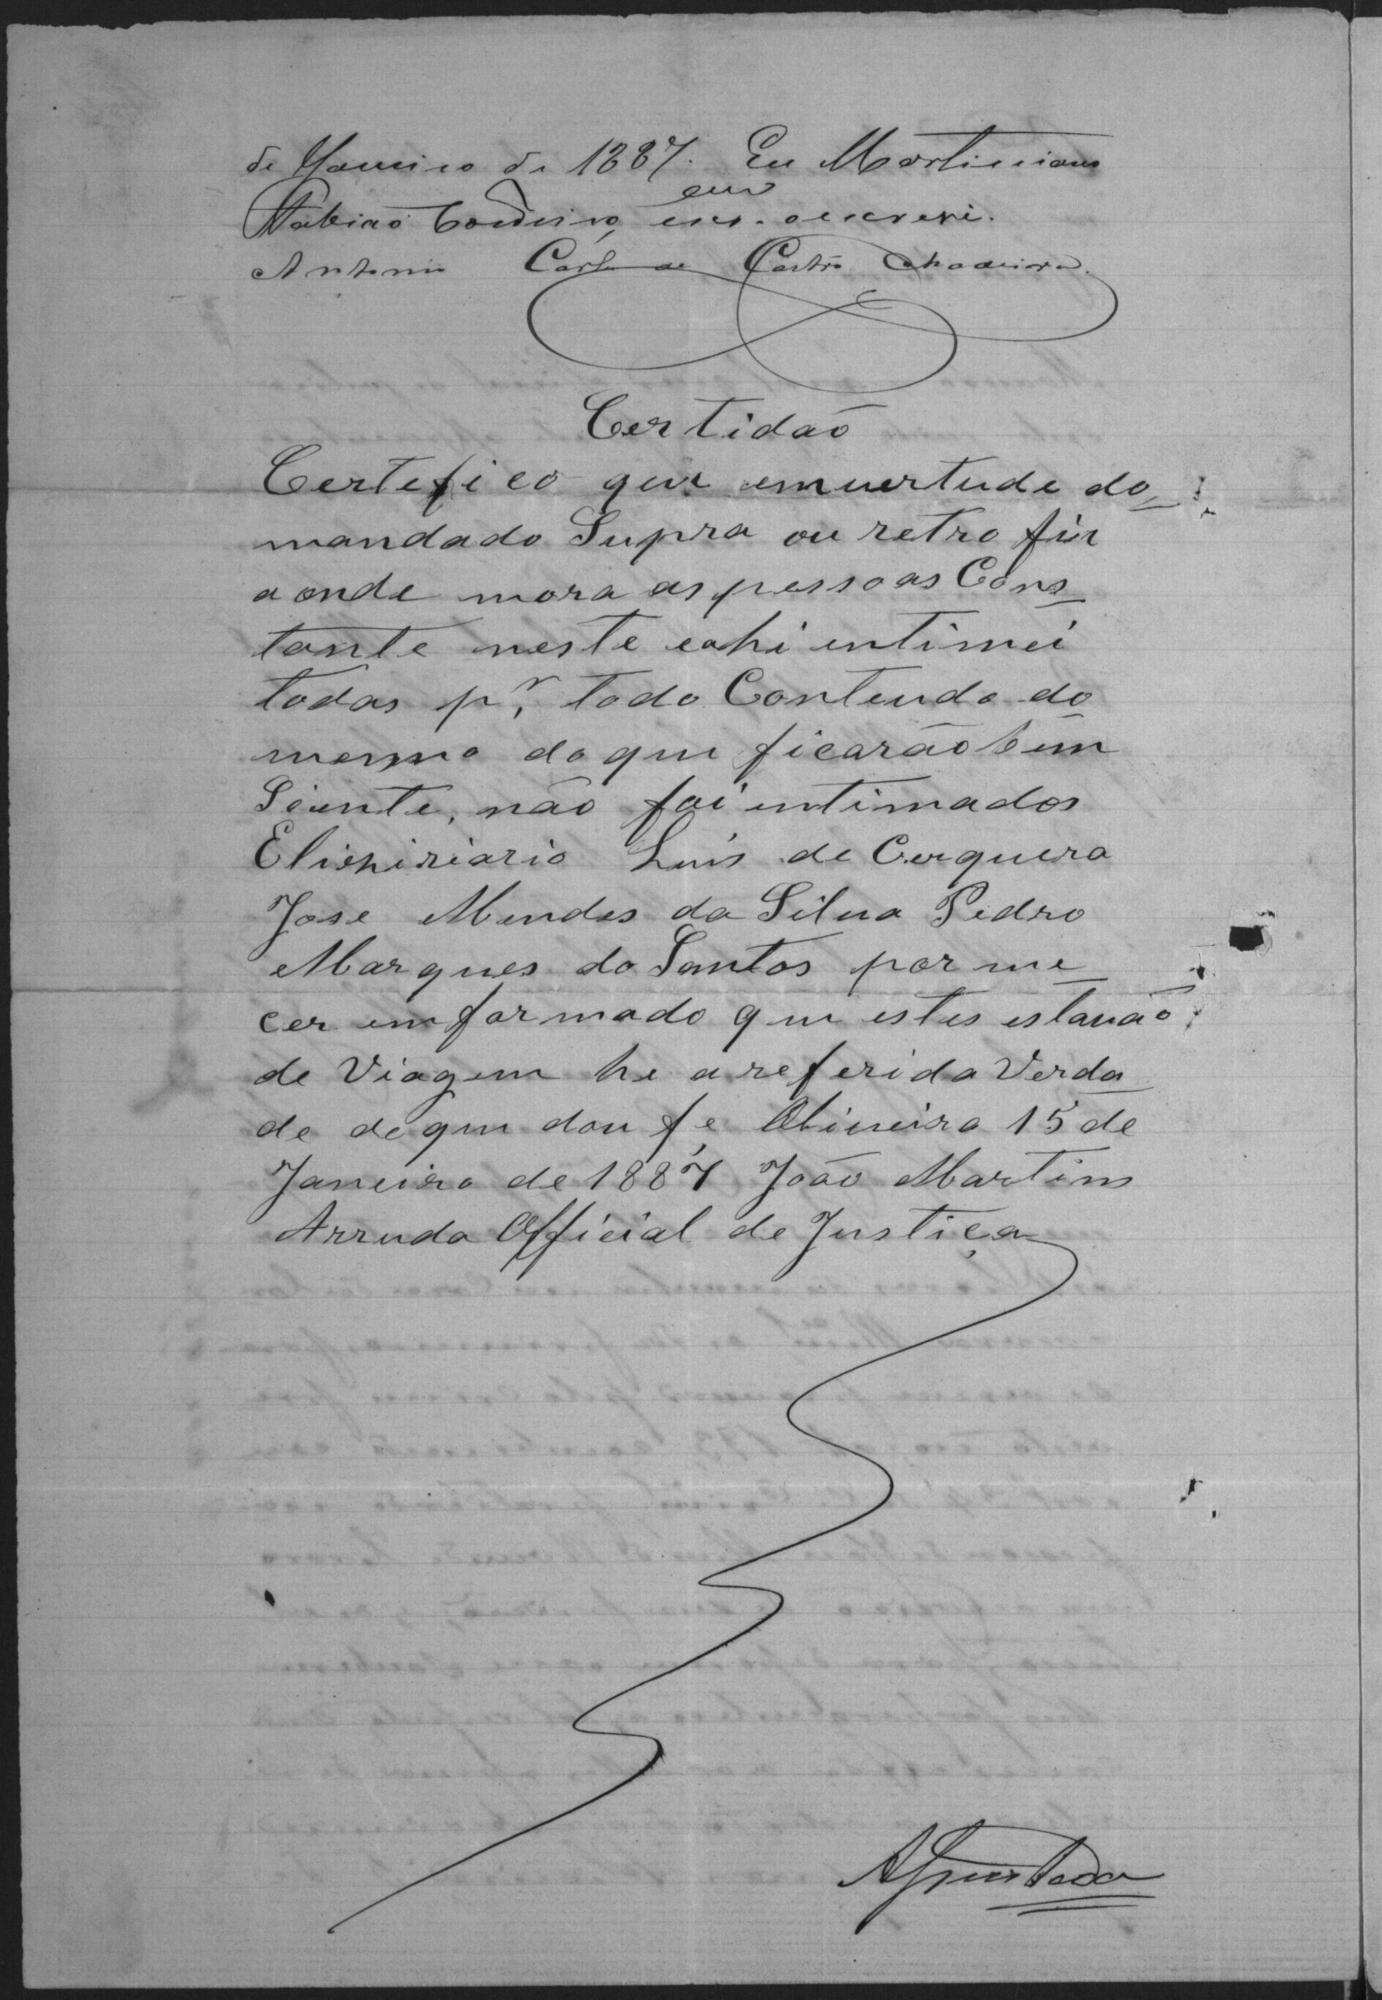 de Janeiro de 1887. Eu Martiniano
Fabiaõ Cordeiro, escr. o escrevi.
Antonio Carlos de Castro Madeira.
Certidaõ
Certefico que emvertude do
mandado Supra ou retro fui
aonde mora as pessoas Cons
tante neste eahi intimei
todas pr. todo Conteudo do
mesmo do que ficarão bem
Siente, não foi intimados
Luis de Cerquera
Jose Mendes da Silva Pedro
Marques do Santos por me
cer emformado que estes estavaõ
de Viagem he areferida Verda
de deque dou fe Oliveira 15 de
Janeiro de 1887 João Martins
Arruda Official de Justiça